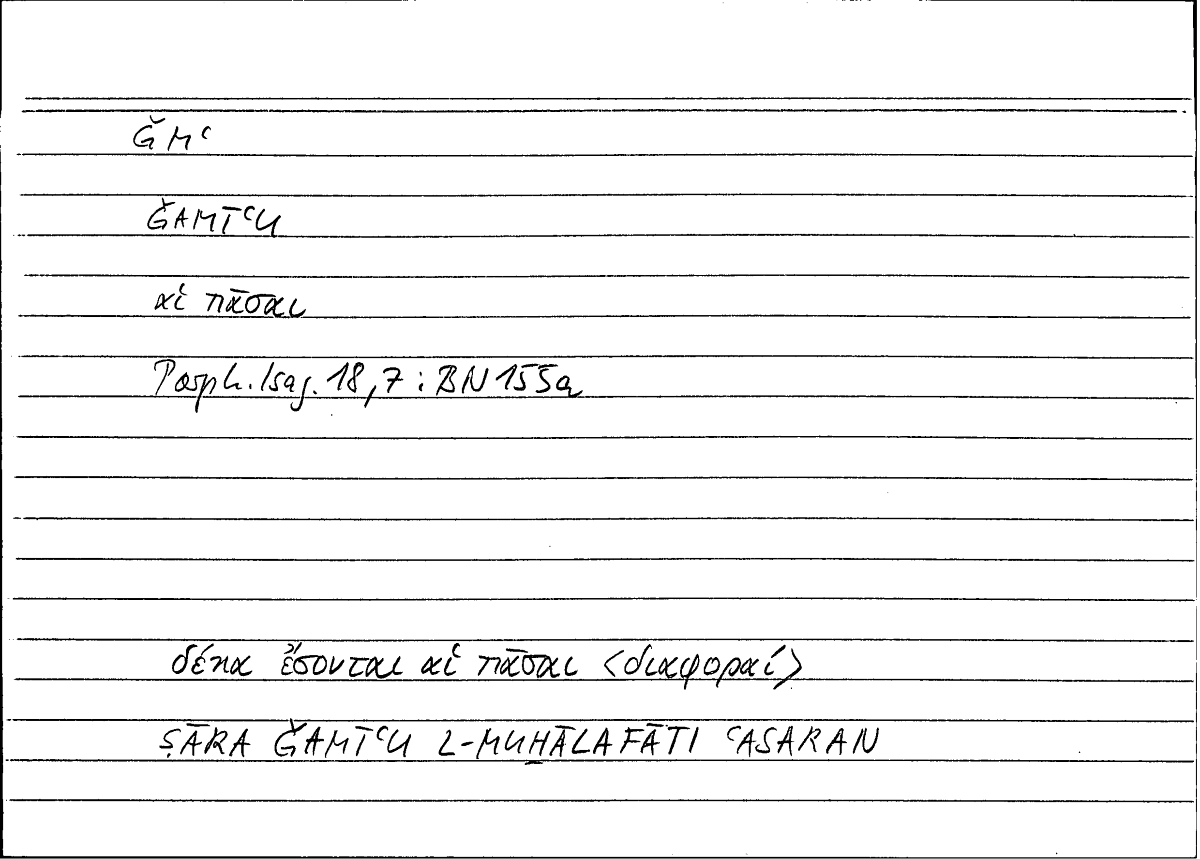 ǦMʿ
ǦAMĪʿU
αἱ πᾶσαι
Porph. Isag. 18,7 : BN 155a
δέκα ἔσονται αἱ πᾶσαι <διαφοραί>
ṢĀRA ǦAMĪʿU L-MUH̱ĀLAFĀTI ʿASARAN